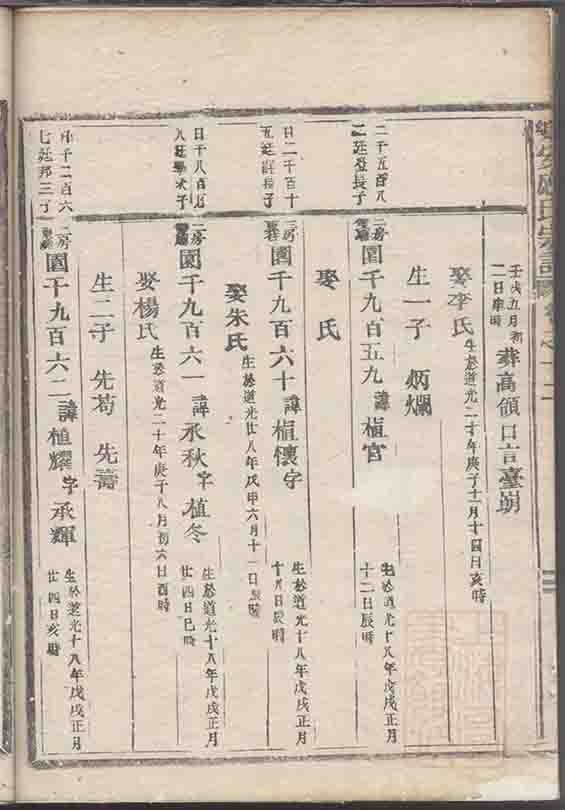 壬戌五月初
二日卒時
葬高嶺口言臺朝
娶李氏
生於道光二十年庚子十二月十四日亥時
生一子 炳爛
二千五百八
二廷登長子
二房
園千九百五九諱植官
生於道光十八年戊戌正月
十二日辰時
娶 氏
日二千百十
二房
園千九百六十諱植懷字
生於道光十八年戊戌正月
十八日辰時
娶朱氏
生於道光廿八年戊申六月十一日辰時
日千八百
二房
園千九百六一諱承秋字植冬
生於道光十八年戊戌正月
廿四日巳時
娶楊氏
生於道光二十年庚子八月初六日酉時
生二子 先苟 先壽
千二百六
七廷邦三子
二房
園千九百六二諱植耀字承輝
生於道光十八年戊戌正月
廿四日亥時